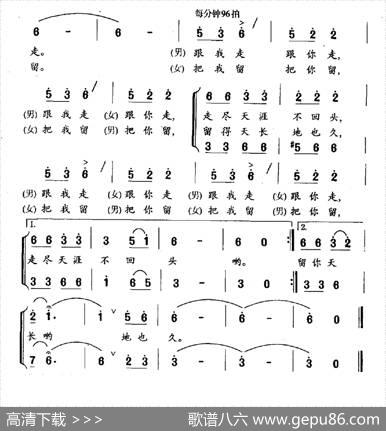 每分钟96拍
6 - | 6 - | 5 3 6 / | 5 2 2 |
走。 (男)跟我走 跟你走,
留。 (女)把我留 把你留,
5 3 6 / | 5 2 2 | 6 6 3 3 | 2 2 2 |
(男)跟我走 (女)跟你走, 走尽天涯 不回头,
(女)把我留 (男)把你留, 留得天长 地也久,
3 3 6 6 | #5 6 6 |
5 3 6 / | 5 2 2 | 5 3 6 / | 5 2 2 |
(男)跟我走 (女)跟你走, (男)跟我走 (女)跟你走,
(女)把我留 (男)把你留, (女)把我留 (男)把你留,
1. 2.
6 6 3 3 | 3 5 1 | 6 - | 6 0 :‖ 6 6 3 2 |
走尽天涯 不回头 哟。 留你天
3 3 6 6 | 1 6 5 | 3 - | 3 0 :‖ 3 3 6 |
2 1· | 1 ∨ 5 6 | 6 - | 6 - | 6 0 ‖
长哟 地也久。
7 6· | 6 ∨ 2 3 | 3 - | 3 - | 3 0 ‖
高清下载 >>> | 歌谱八六 www.gepu86.com